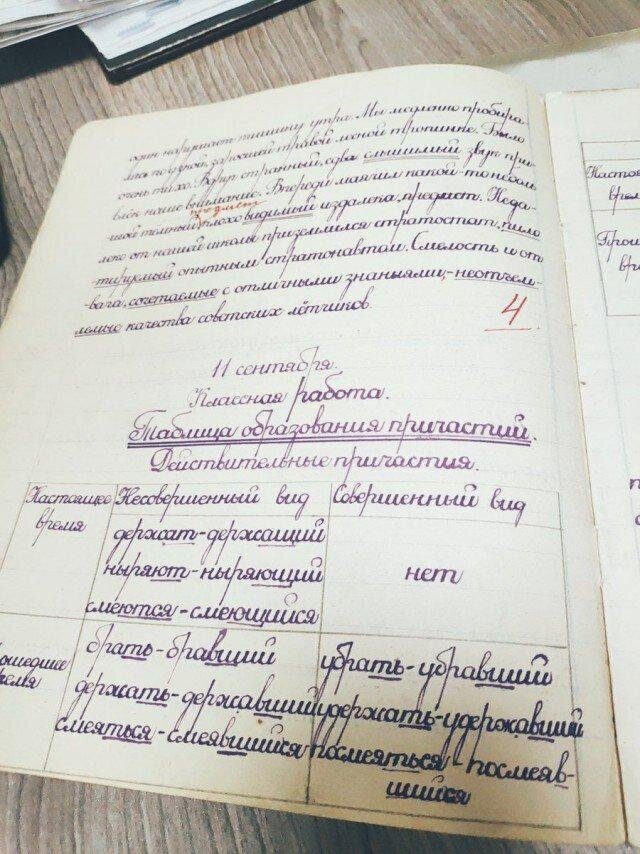 один нарушает тишину утра. Мы медленно пробира-
лись по узкой, заросшей травой лесной тропинке. Было
очень тихо. Вдруг странный, едва слышимый звук при-
влёк наше внимание. Впереди маячил какой-то неболь
предмет
шой темный, плохо видимый издалека, предмет. Неда-
леко от нашей школы приземлился стратостат, пило
тируемый опытным стратонавтом. Смелость и от
вага, сочетаемые с отличными знаниями, - неотъем-
лемые качества советских лётчиков.
4
11 сентября.
Классная работа.
Таблица образования причастий.
Действительные причастия.
Настоящее время
Несовершенный вид
Совершенный вид
держат - держащий
ныряют - ныряющий
смеются - смеющийся
нет
ошедшее
ремя
брать - бравший
держать - державший
смеяться - смеявшийся
убрать - убравший
удержать - удержавший
посмеяться - посмеяв-
шийся
Настоя
врем
Проше
вре